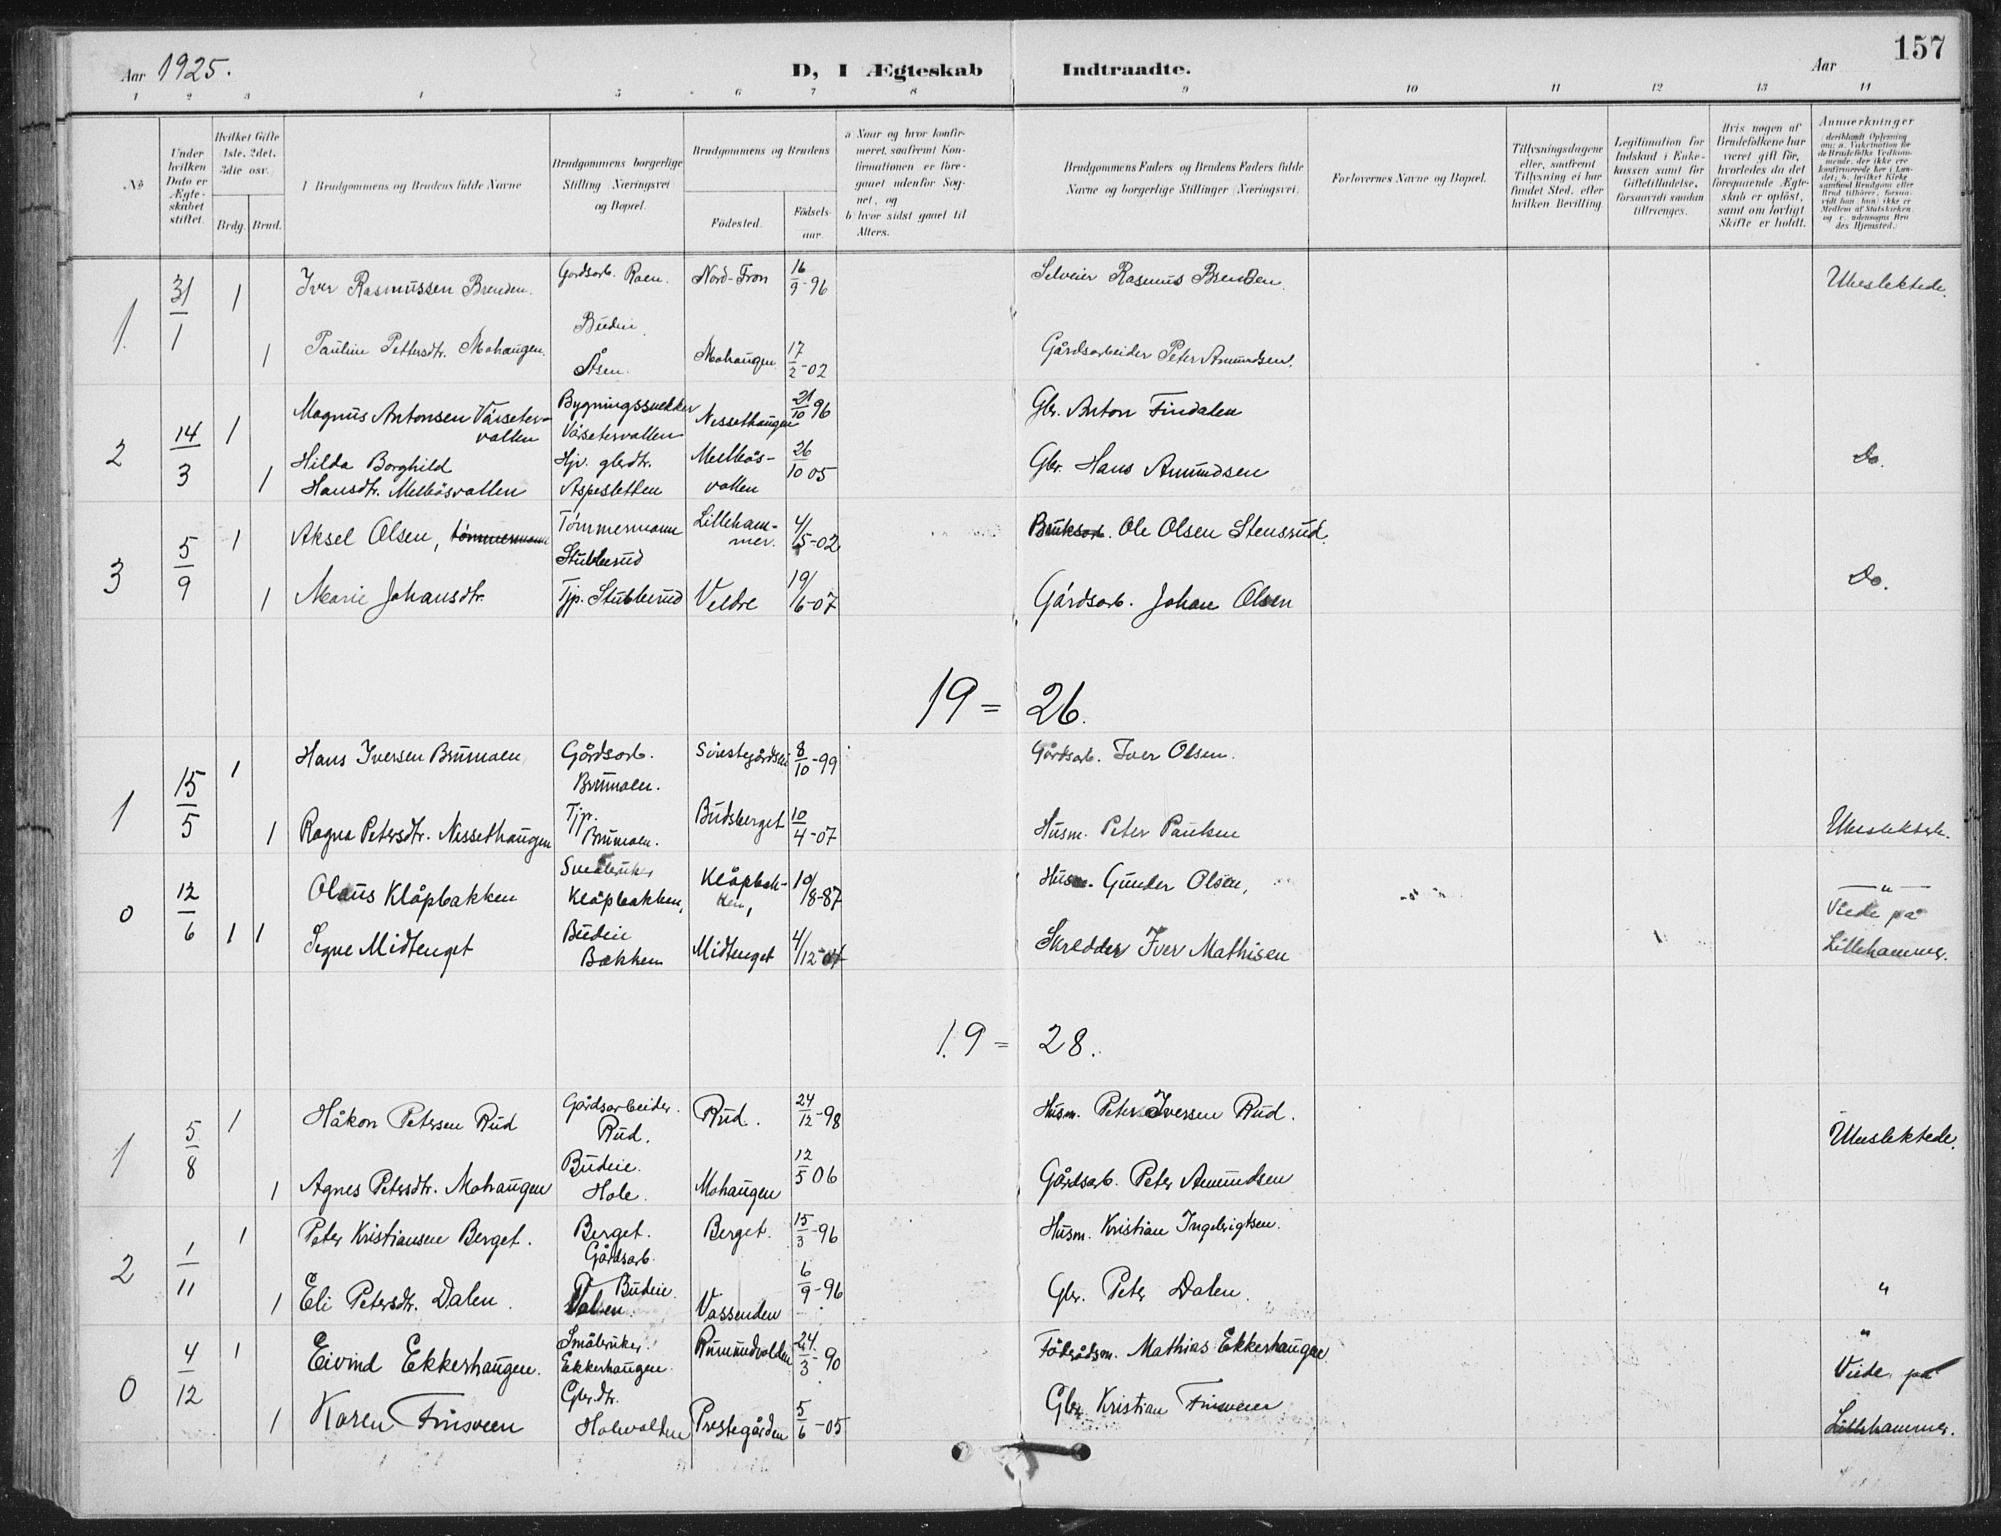 157
Aar 1925.
D, I Ægteskab Indtraadte.
Aar
1 2 3 4 5 6 7 8 9 10 11 12 13 14
No
Under hvilken Dato er Ægteskabet stiftet.
Hvilket Gifte 1ste, 2det, 3die osv.
Brdg. Brud.
Brudgommens og Brudens fulde Navne
Brudgommens borgerlige Stilling (Næringsvei) og Bopæl.
Brudgommens og Brudens
Fødested.
Fødselsaar.
a Naar og hvor konfirmeret, saafremt Konfirmationen er foregaaet udenfor Sognet, og
b hvor sidst gaaet til Alters.
Brudgommens Faders og Brudens Faders fulde Navne og borgerlige Stillinger (Næringsvei).
Forlovernes Navne og Bopæl.
Tillysningsdagene eller, saafremt Tillysning ei har fundet Sted, efter hvilken Bevilling
Legitimation for Indskud i Enkekassen samt for Giftetilladelse, forsaavidt saadan tiltrænges.
Hvis nogen af Brudefolkene har været gift før, hvorledes da det foregaaende Ægteskab er opløst, samt om lovligt Skifte er holdt.
Anmærkninger
1 31/1 1 Iver Rasmussen Brenden. Gardsarb. Roen. Nord-Fron 16/9-96 Selveier Rasmus Brenden. Ubeslektede.
1 Pauline Pettersdtr. Mohaugen. Budeie Åsen. Mohaugen. 17/2-02 Gårdsarbeider Peter Amundsen.
2 14/3 1 Magnus Antonsen Vårsetervollen Bygningssnekker Vårsetervollen Nessethaugen 21/10 96 Gbr. Anton Findalen
1 Hilda Borghild Hansdtr. Melbøsvollen Hjv. gbrdtr. Aspesletten Melbøsvollen 26/10 05 Gbr. Hans Amundsen Do.
3 5/9 1 Aksel Olsen, tømmermann Tømmermann Stubberud Lillehammer. 4/5-02 Bruksarb. Ole Olsen Stensrud.
1 Marie Johansdtr. Tjp. Stubberud Veldre 19/6-07 Gårdsarb. Johan Olsen Do.
19 = 26.
1 15/5 1 Hans Iversen Brumoen Gårdsarb. Brumoen. 8/10-99 Gårdsarb. Iver Olsen.
1 Ragna Petersdtr. Nessethaugen Tjp. Brumoen. Budsberget 10/4-07 Husm. Peter Paulsen Ubeslektede.
0 12/6 1 Olaus Klåpbakken Småbruker Klåpbakken, Klåpbakken, 10/8-87 Husm. Gunder Olsen, — " —
1 Signe Midtenget Budeie Bakken Midtenget 4/12-07 Skredder Iver Mathisen Viede på Lillehammer.
19 = 28.
1 5/8 1 Håkon Petersen Rud Gårdsarbeider. Rud. Rud. 24/12-98 Husm. Peter Iversen Rud. Ubeslektede.
1 Agnes Petersdtr. Mohaugen Budeie. Hole. Mohaugen 12/5 06 Gårdsarb. Peter Amundsen
2 1/11 1 Peter Kristiansen Berget. Berget. Gårdsarb. Berget. 15/3-96 Husm. Kristian Ingebrigtsen.
1 Eli Petersdtr. Dalen. Budeie. Dalen. Vassenden 6/9-96 Gbr. Peter Dalen. "
0 4/12 1 Eivind Ekkerhaugen. Småbruker Ekkerhaugen. Rumundvolden 24/3-90 Føderådsm. Mathias Ekkerhaugen "
1 Karen Finsveen Gbr.dtr. Holevolden Prestegården 5/6-05 Gbr Kristian Finsveen Viede på Lillehammer.